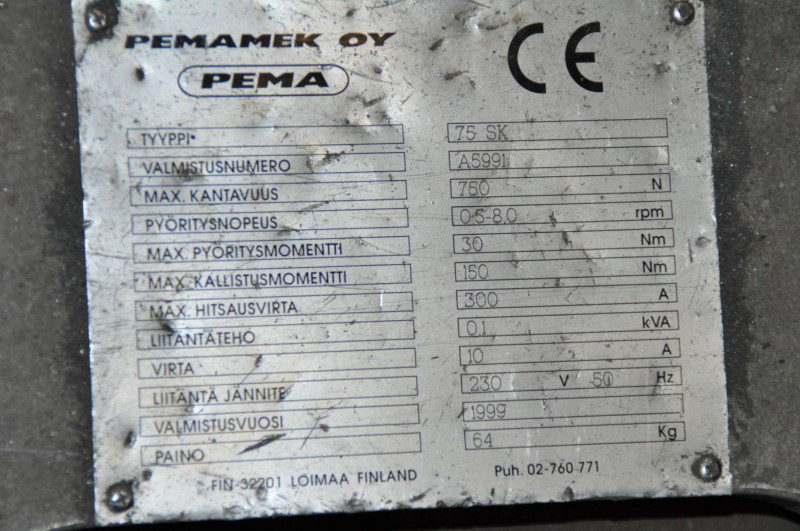 PEMAMEK OY
PEMA
CE
TYYPPI 75 SK
VALMISTUSNUMERO A5991
MAX. KANTAVUUS 750 N
PYÖRITYSNOPEUS 0.5-8.0 rpm
MAX. PYÖRITYSMOMENTTI 30 Nm
MAX. KALLISTUSMOMENTTI 150 Nm
MAX. HITSAUSVIRTA 300 A
LIITÄNTÄTEHO 0.1 kVA
VIRTA 10 A
LIITÄNTÄ JÄNNITE 230 V 50 Hz
VALMISTUSVUOSI 1999
PAINO 64 Kg
FIN-32201 LOIMAA FINLAND Puh. 02-760 771